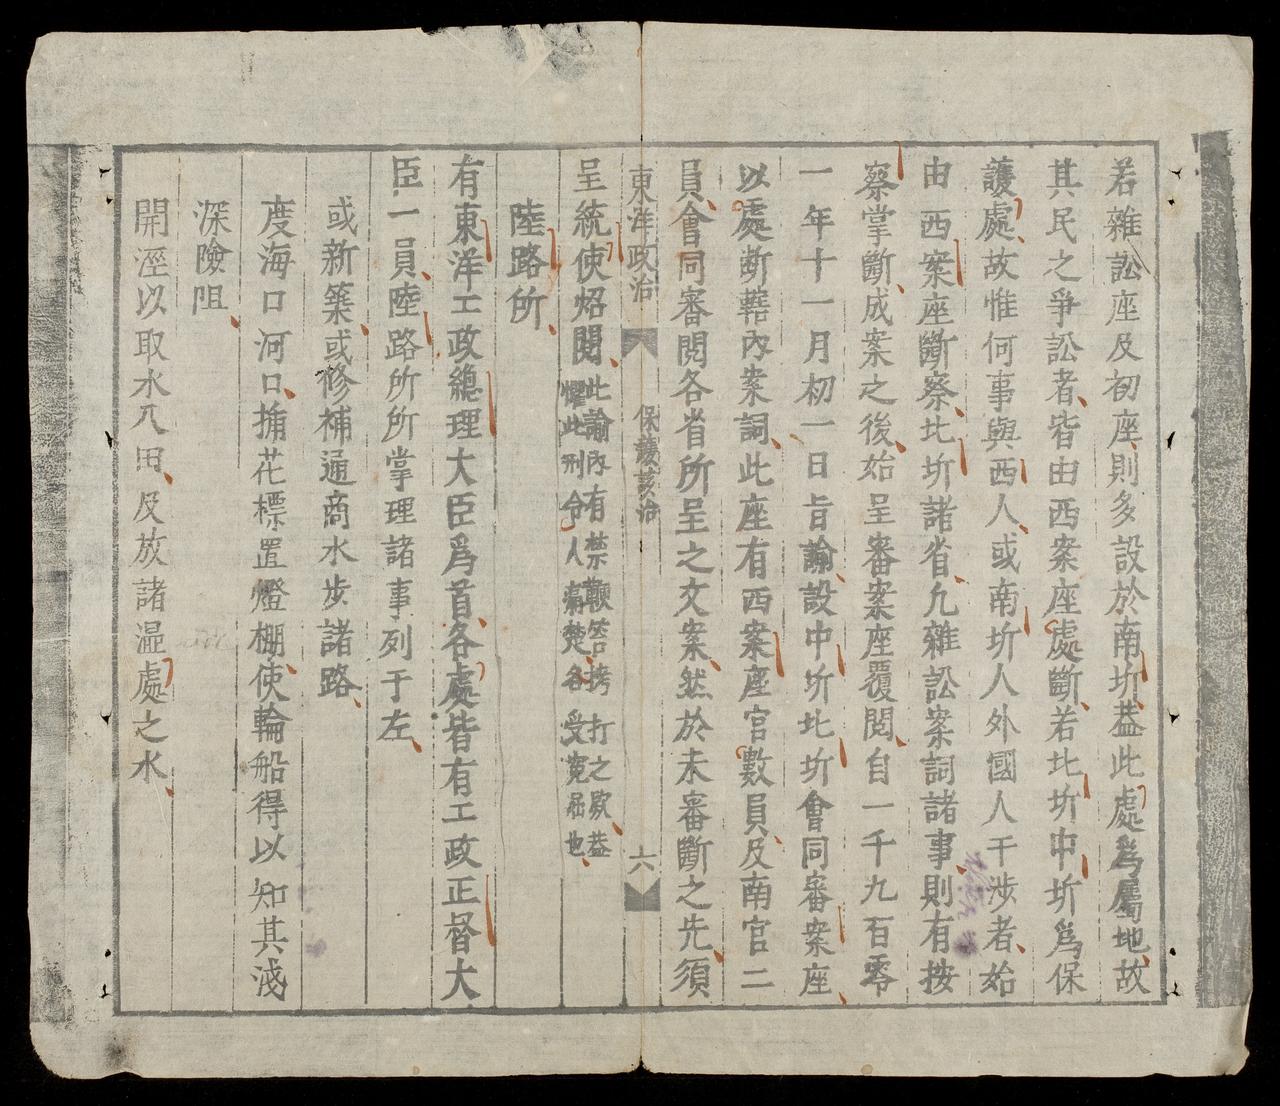 若雜訟座及初座則多設於南圻葢此處爲屬地故
其民之爭訟者皆由西案座處斷若北圻中圻爲保
護處故惟何事與西人或南圻人外國人干涉者始
由西案座斷察北圻諸省凣雜訟案詞諸事則有按
察掌斷成案之後始呈審案座覆閱自一千九百零
一年十一月初一日旨諭設中圻北圻會同審案座
以處断轄內案詞此座有西案座官數員及南官二
員會同審閱各省所呈之文案然於未審斷之先須
東洋政治 保護該治 六
呈統使炤閱此諭內有禁鞭笞拷打之欵葢
懼此刑令人痛楚各受寃屈也
陸路所
有東洋工政總理大臣爲首各處皆有工政正督大
臣一員陸路所所掌理諸事列于左
或新築或修補通商水步諸路
度海口河口揷花標置燈棚使輪船得以知其淺
深險阻
開涇以取水入田及放諸濕處之水